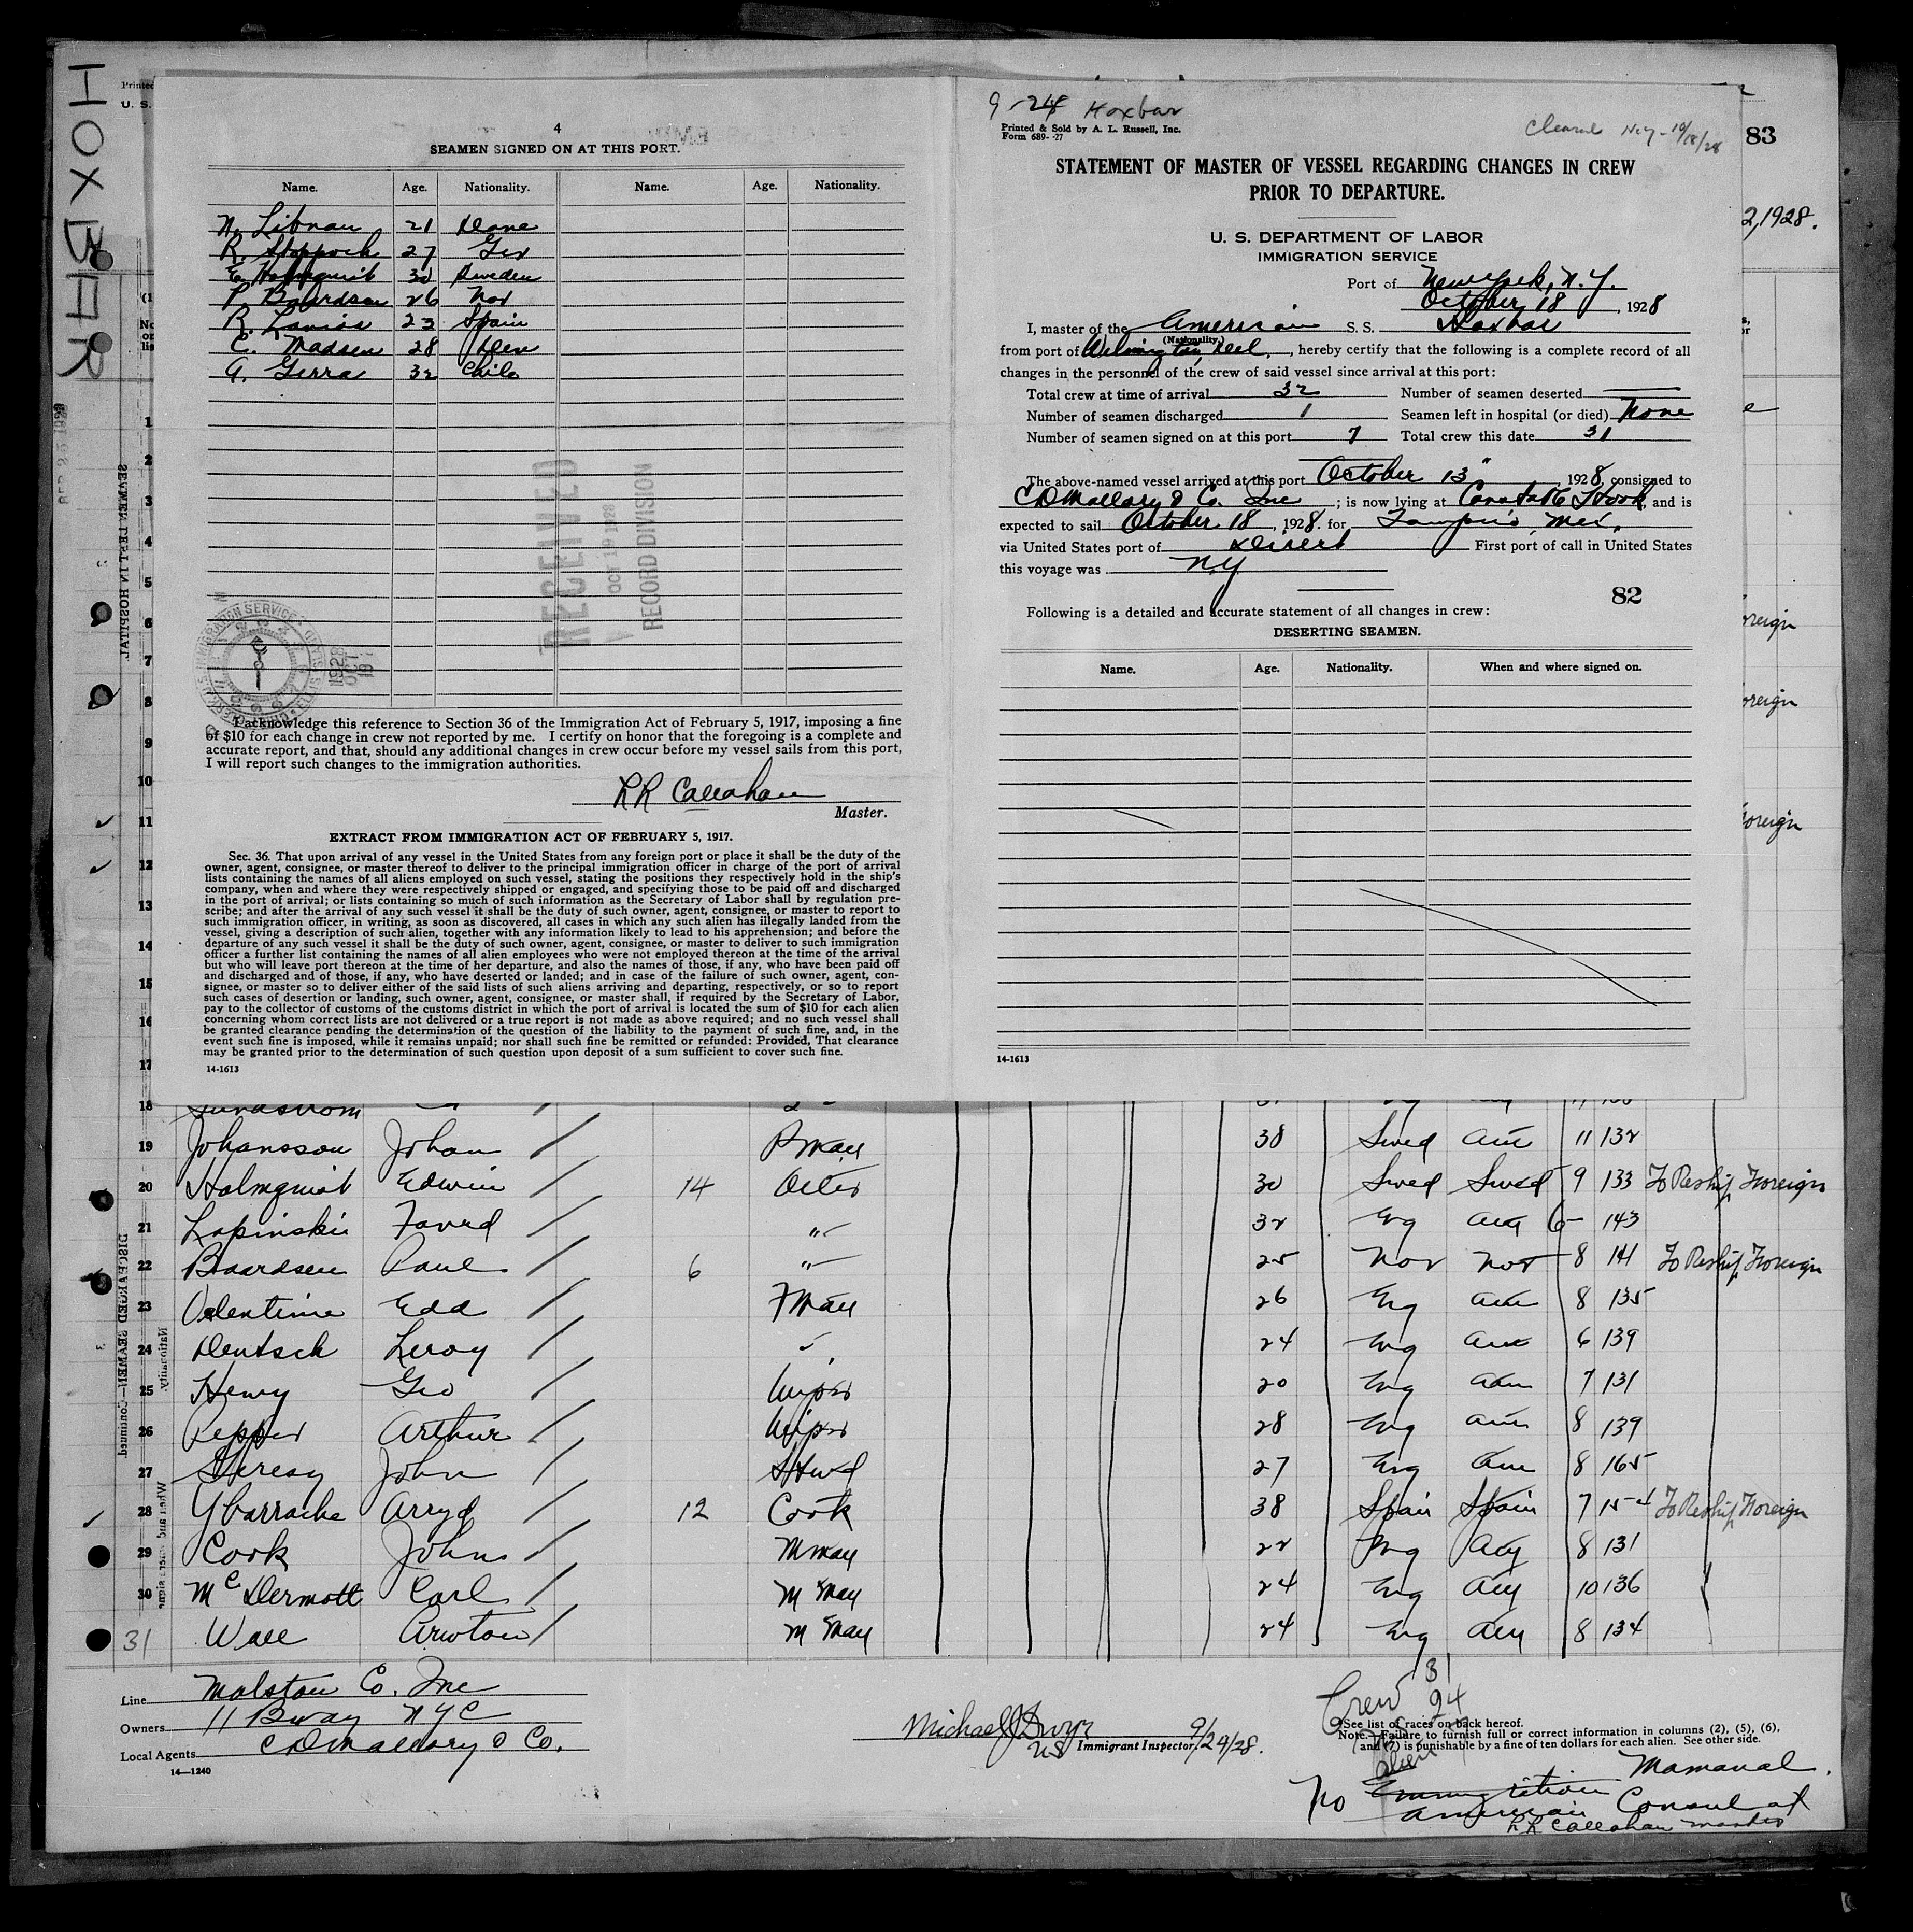 HOXBAR
4
SEAMEN SIGNED ON AT THIS PORT.
Name. Age. Nationality. Name. Age. Nationality.
N. Libnau 21 Dane
R. Stoppock 27 Ger
E. Holmquist 30 Sweden
P. Baardsen 26 Nor
R. 23 Spain
C. Madsen 28 Den
G. Gerra 32 Chile
RECEIVED
OCT 19 1928
RECORD DIVISION
I acknowledge this reference to Section 36 of the Immigration Act of February 5, 1917, imposing a fine
of $10 for each change in crew not reported by me. I certify on honor that the foregoing is a complete and
accurate report, and that, should any additional changes in crew occur before my vessel sails from this port,
I will report such changes to the immigration authorities.
RR Callahan
Master.
EXTRACT FROM IMMIGRATION ACT OF FEBRUARY 5, 1917.
Sec. 36. That upon arrival of any vessel in the United States from any foreign port or place it shall be the duty of the
owner, agent, consignee, or master thereof to deliver to the principal immigration officer in charge of the port of arrival
lists containing the names of all aliens employed on such vessel, stating the positions they respectively hold in the ship's
company, when and where they were respectively shipped or engaged, and specifying those to be paid off and discharged
in the port of arrival; or lists containing so much of such information as the Secretary of Labor shall by regulation pre-
scribe; and after the arrival of any such vessel it shall be the duty of such owner, agent, consignee, or master to report to
such immigration officer, in writing, as soon as discovered, all cases in which any such alien has illegally landed from the
vessel, giving a description of such alien, together with any information likely to lead to his apprehension; and before the
departure of any such vessel it shall be the duty of such owner, agent, consignee, or master to deliver to such immigration
officer a further list containing the names of all alien employees who were not employed thereon at the time of the arrival
but who will leave port thereon at the time of her departure, and also the names of those, if any, who have been paid off
and discharged and of those, if any, who have deserted or landed; and in case of the failure of such owner, agent, con-
signee, or master so to deliver either of the said lists of such aliens arriving and departing, respectively, or so to report
such cases of desertion or landing, such owner, agent, consignee, or master shall, if required by the Secretary of Labor,
pay to the collector of customs of the customs district in which the port of arrival is located the sum of $10 for each alien
concerning whom correct lists are not delivered or a true report is not made as above required; and no such vessel shall
be granted clearance pending the determination of the question of the liability to the payment of such fine, and, in the
event such fine is imposed, while it remains unpaid; nor shall such fine be remitted or refunded: Provided, That clearance
may be granted prior to the determination of such question upon deposit of a sum sufficient to cover such fine.
14-1613
9-24 Hoxbar
Printed & Sold by A. L. Russell, Inc.
Form 689- -27
Cleared N.Y - 10/18/28
83
STATEMENT OF MASTER OF VESSEL REGARDING CHANGES IN CREW
PRIOR TO DEPARTURE.
2, 1928.
U. S. DEPARTMENT OF LABOR
IMMIGRATION SERVICE
Port of New York, N.Y.
October 18, 1928
I, master of the American S. S. Hoxbar
(Nationality)
from port of Wilmington, Del., hereby certify that the following is a complete record of all
changes in the personnel of the crew of said vessel since arrival at this port:
Total crew at time of arrival 32 Number of seamen deserted
Number of seamen discharged 1 Seamen left in hospital (or died) None
Number of seamen signed on at this port 7 Total crew this date 31
The above-named vessel arrived at this port October 13", 1928, consigned to
C D Mallory & Co. Inc ; is now lying at Constable Hook, and is
expected to sail October 18, 1928. for Tampico, Mex.
via United States port of Direct First port of call in United States
this voyage was N.Y
82
Following is a detailed and accurate statement of all changes in crew:
DESERTING SEAMEN.
Name. Age. Nationality. When and where signed on.
14-1613
18 Sundstrom
19 Johansson Johan / 38 Swed Am 11 132
20 Holmquist Edwin / 14 Oiler 30 Swed Swed 9 133 To Reship Foreign
21 Lapinskie / " 32 Eng 143
22 Baardsen Paul / 6 " 25 Nor Nor 8 141 To Reship Foreign
23 Valentine Edd / Fman 26 Eng Am 8 135
24 Deutsch Leroy / " 24 Eng Am 6 139
25 Henry Geo / Wiper 20 Eng Am 7 131
26 Pepper Arthur / Wiper 28 Eng Am 8 139
27 John / Stwd 27 Eng Am 8 165
28 Ybarrache / 12 Cook 38 Spain Spain 7 154 To Reship Foreign
29 Cook John / Mman 22 Eng 8 131
30 McDermott Carl / M man 24 Eng 10 136
31 Wall / M man 24 Eng 8 134
Line Malston Co. Inc
Owners 11 Bway NYC
Local Agents C D Mallory & Co.
14—1240
Michael J Dwyer
US Immigrant Inspector. 9/24/28.
Crew 31
See list of races on back hereof.
Note.—Failure to furnish full or correct information in columns (2), (5), (6),
and (7) is punishable by a fine of ten dollars for each alien. See other side.
No American Consul at Mamanal.
RR Callahan master